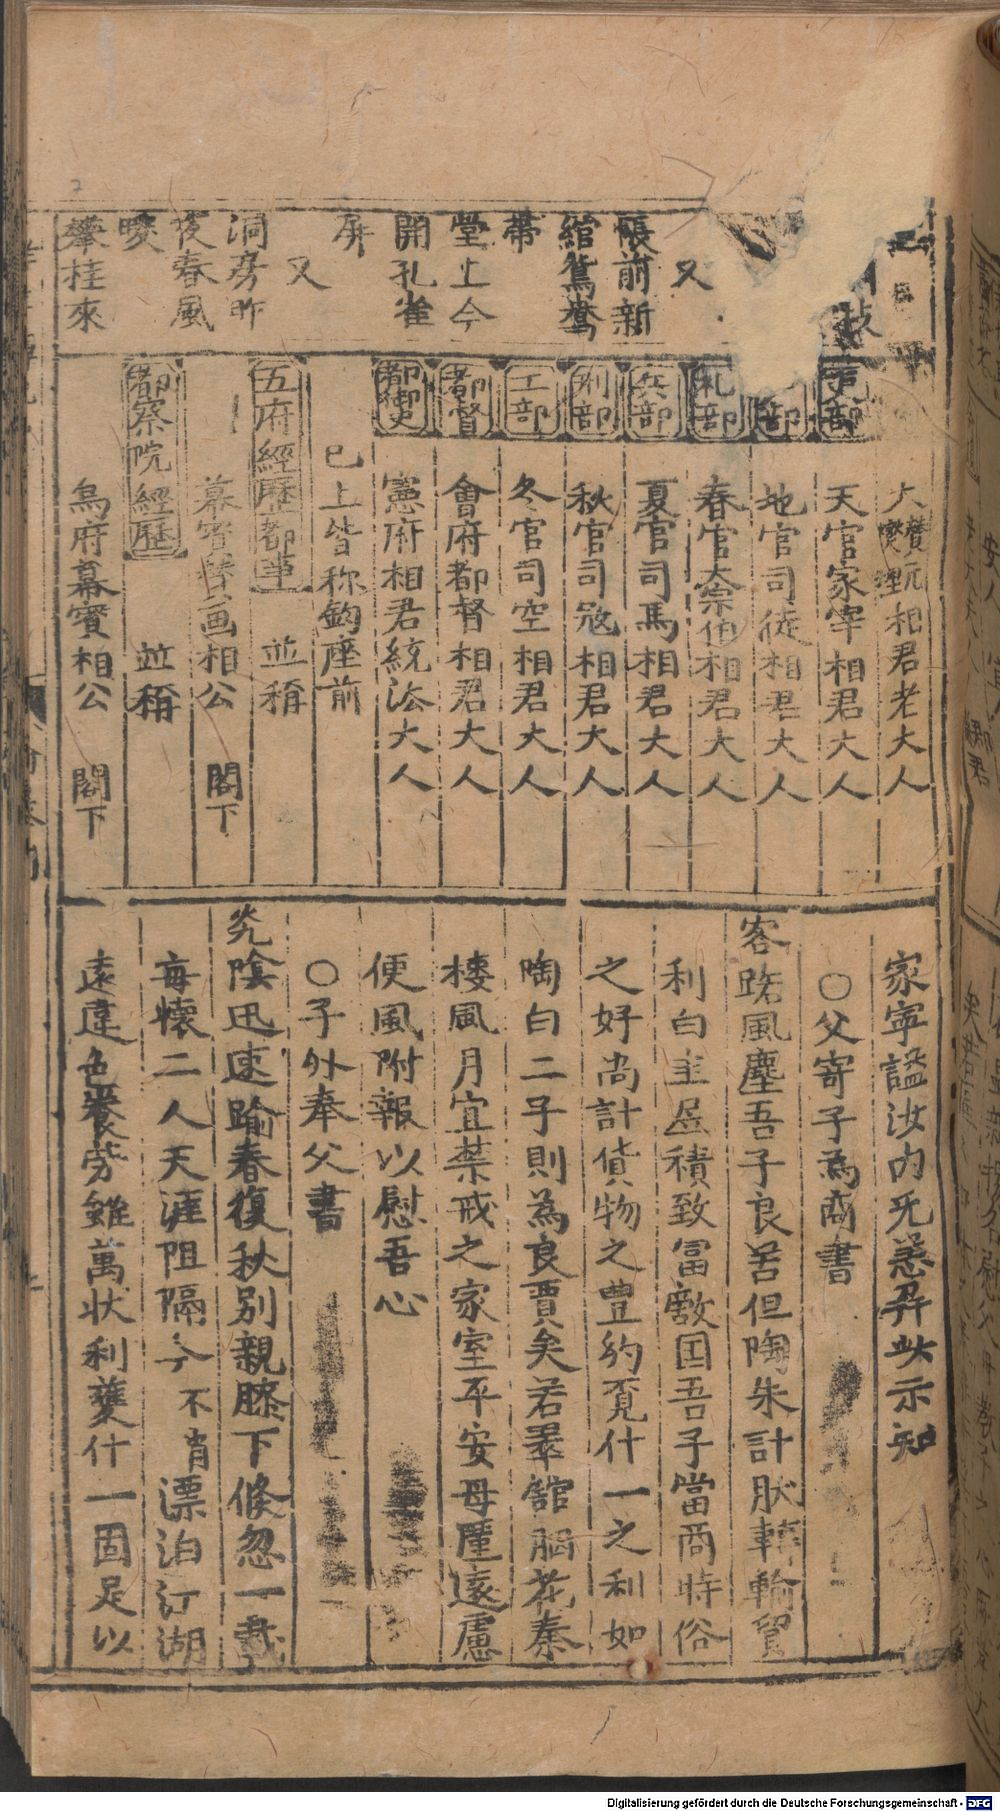 又
帳前新
綰鴛鴦
帶
堂上今
開孔雀
屏
又
洞房昨
夜春風
暖
攀桂來
大贊元相君老大人
爕理
吏部
天官冢宰相君大人
部
地官司徒相君大人
礼部
春官太宗伯相君大人
兵部
夏官司馬相君大人
刑部
秋官司冦相君大人
工部
冬官司空相君大人
都督
會府都督相君大人
都御史
憲府相君統法大人
已上皆称鈞座前
五府經歷都事 並稱
幕賓賛画相公 閣下
都察院經歷 並稱
烏府幕賓相公 閣下
家寧謐汝内旡恙并此示知
○父寄子為商書
客路風塵吾子良苦但陶朱計然轉輸貿
利白圭居積致冨敵国吾子當商時俗
之好尚計貨物之豊約覔什一之利如
陶白二子則為良賈矣若翠舘胭花秦
楼風月宜禁戒之家室平安毋厪遠慮
便風附報以慰吾心
○子外奉父書
光陰迅速踰春復秋别親膝下倐忽一載
每懐二人天涯阻隔今不肖漂泊江湖
遠違色養劳雖萬状利蔑什一固足以
Digitalisierung gefördert durch die Deutsche Forschungsgemeinschaft - DFG